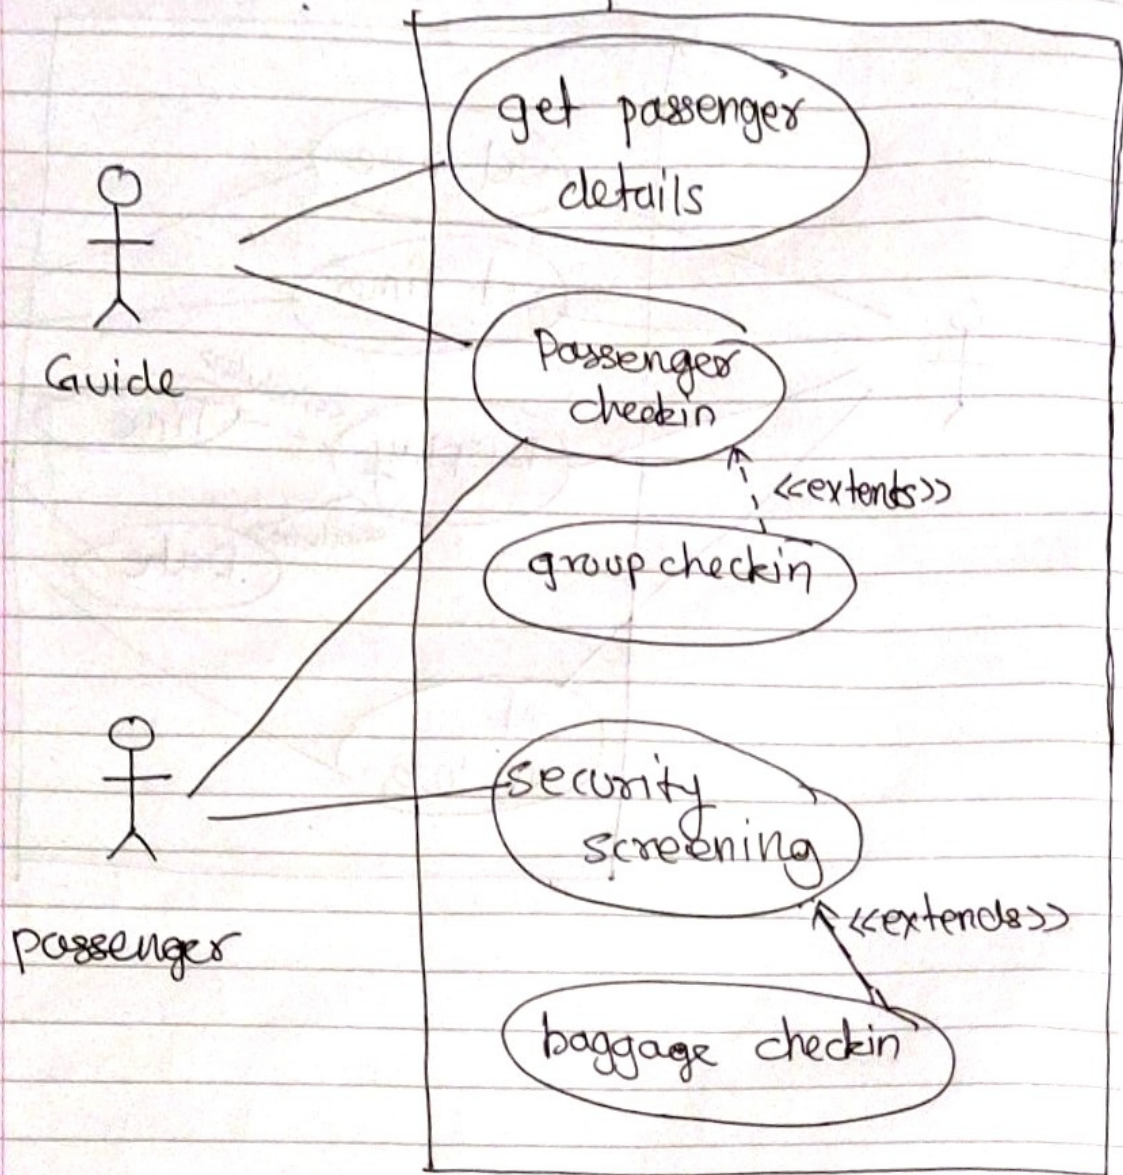 get passenger
details
Guide
Passenger
checkin
<<extends>>
group checkin
security
screening
passenger
<<extends>>
baggage checkin